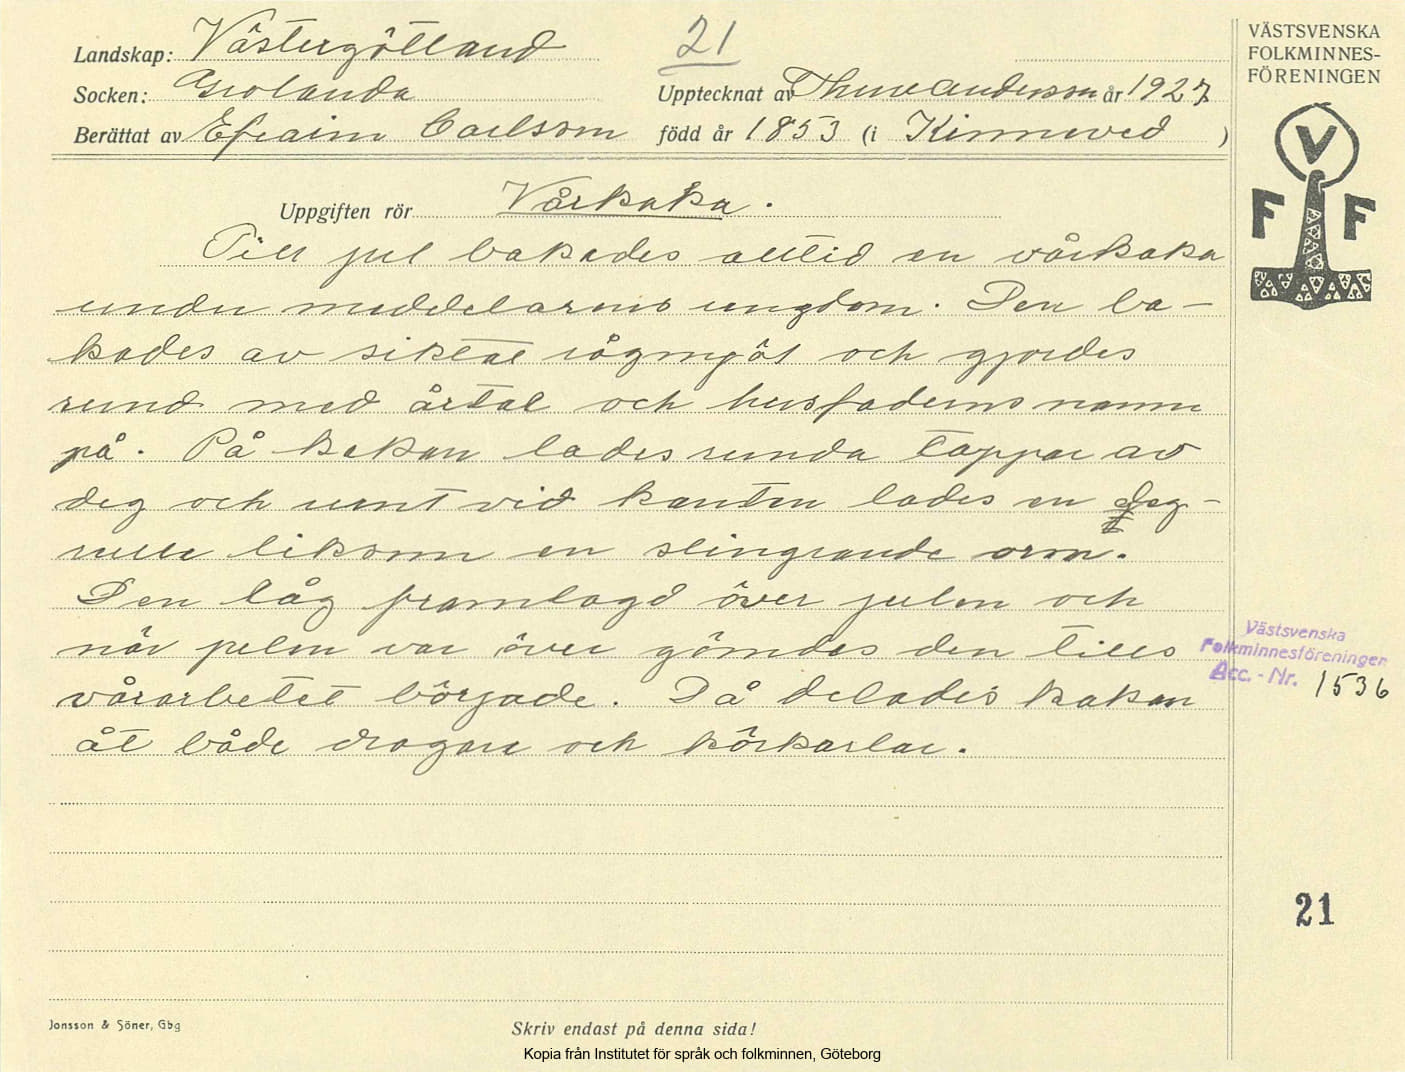 Landskap: Västergötland
21
VÄSTSVENSKA
FOLKMINNES-
FÖRENINGEN
Socken: Grolanda
Upptecknat av Thure Andersson år 1927
Berättat av Efraim Carlsson född år 1853 (i Kinneved )
V
F F
Uppgiften rör Vårkaka.
Till jul bakades alltid en vårkaka
under meddelarens ungdom. Den ba-
kades av siktat rågmjöl och gjordes
rund med årtal och husfaderns namn
på. På kakan lades runda tappar av
deg och runt vid kanten lades en deg-
rulle liksom en slingrande orm.
Den låg framlagd över julen och
när julen var över gömdes den tills
vårarbetet började. Då delades kakan
åt både dragare och körkarlar.
Västsvenska
Folkminnesföreningen
Acc. - Nr. 1536
21
Jonsson & Söner, Gbg
Skriv endast på denna sida!
Kopia från Institutet för språk och folkminnen, Göteborg